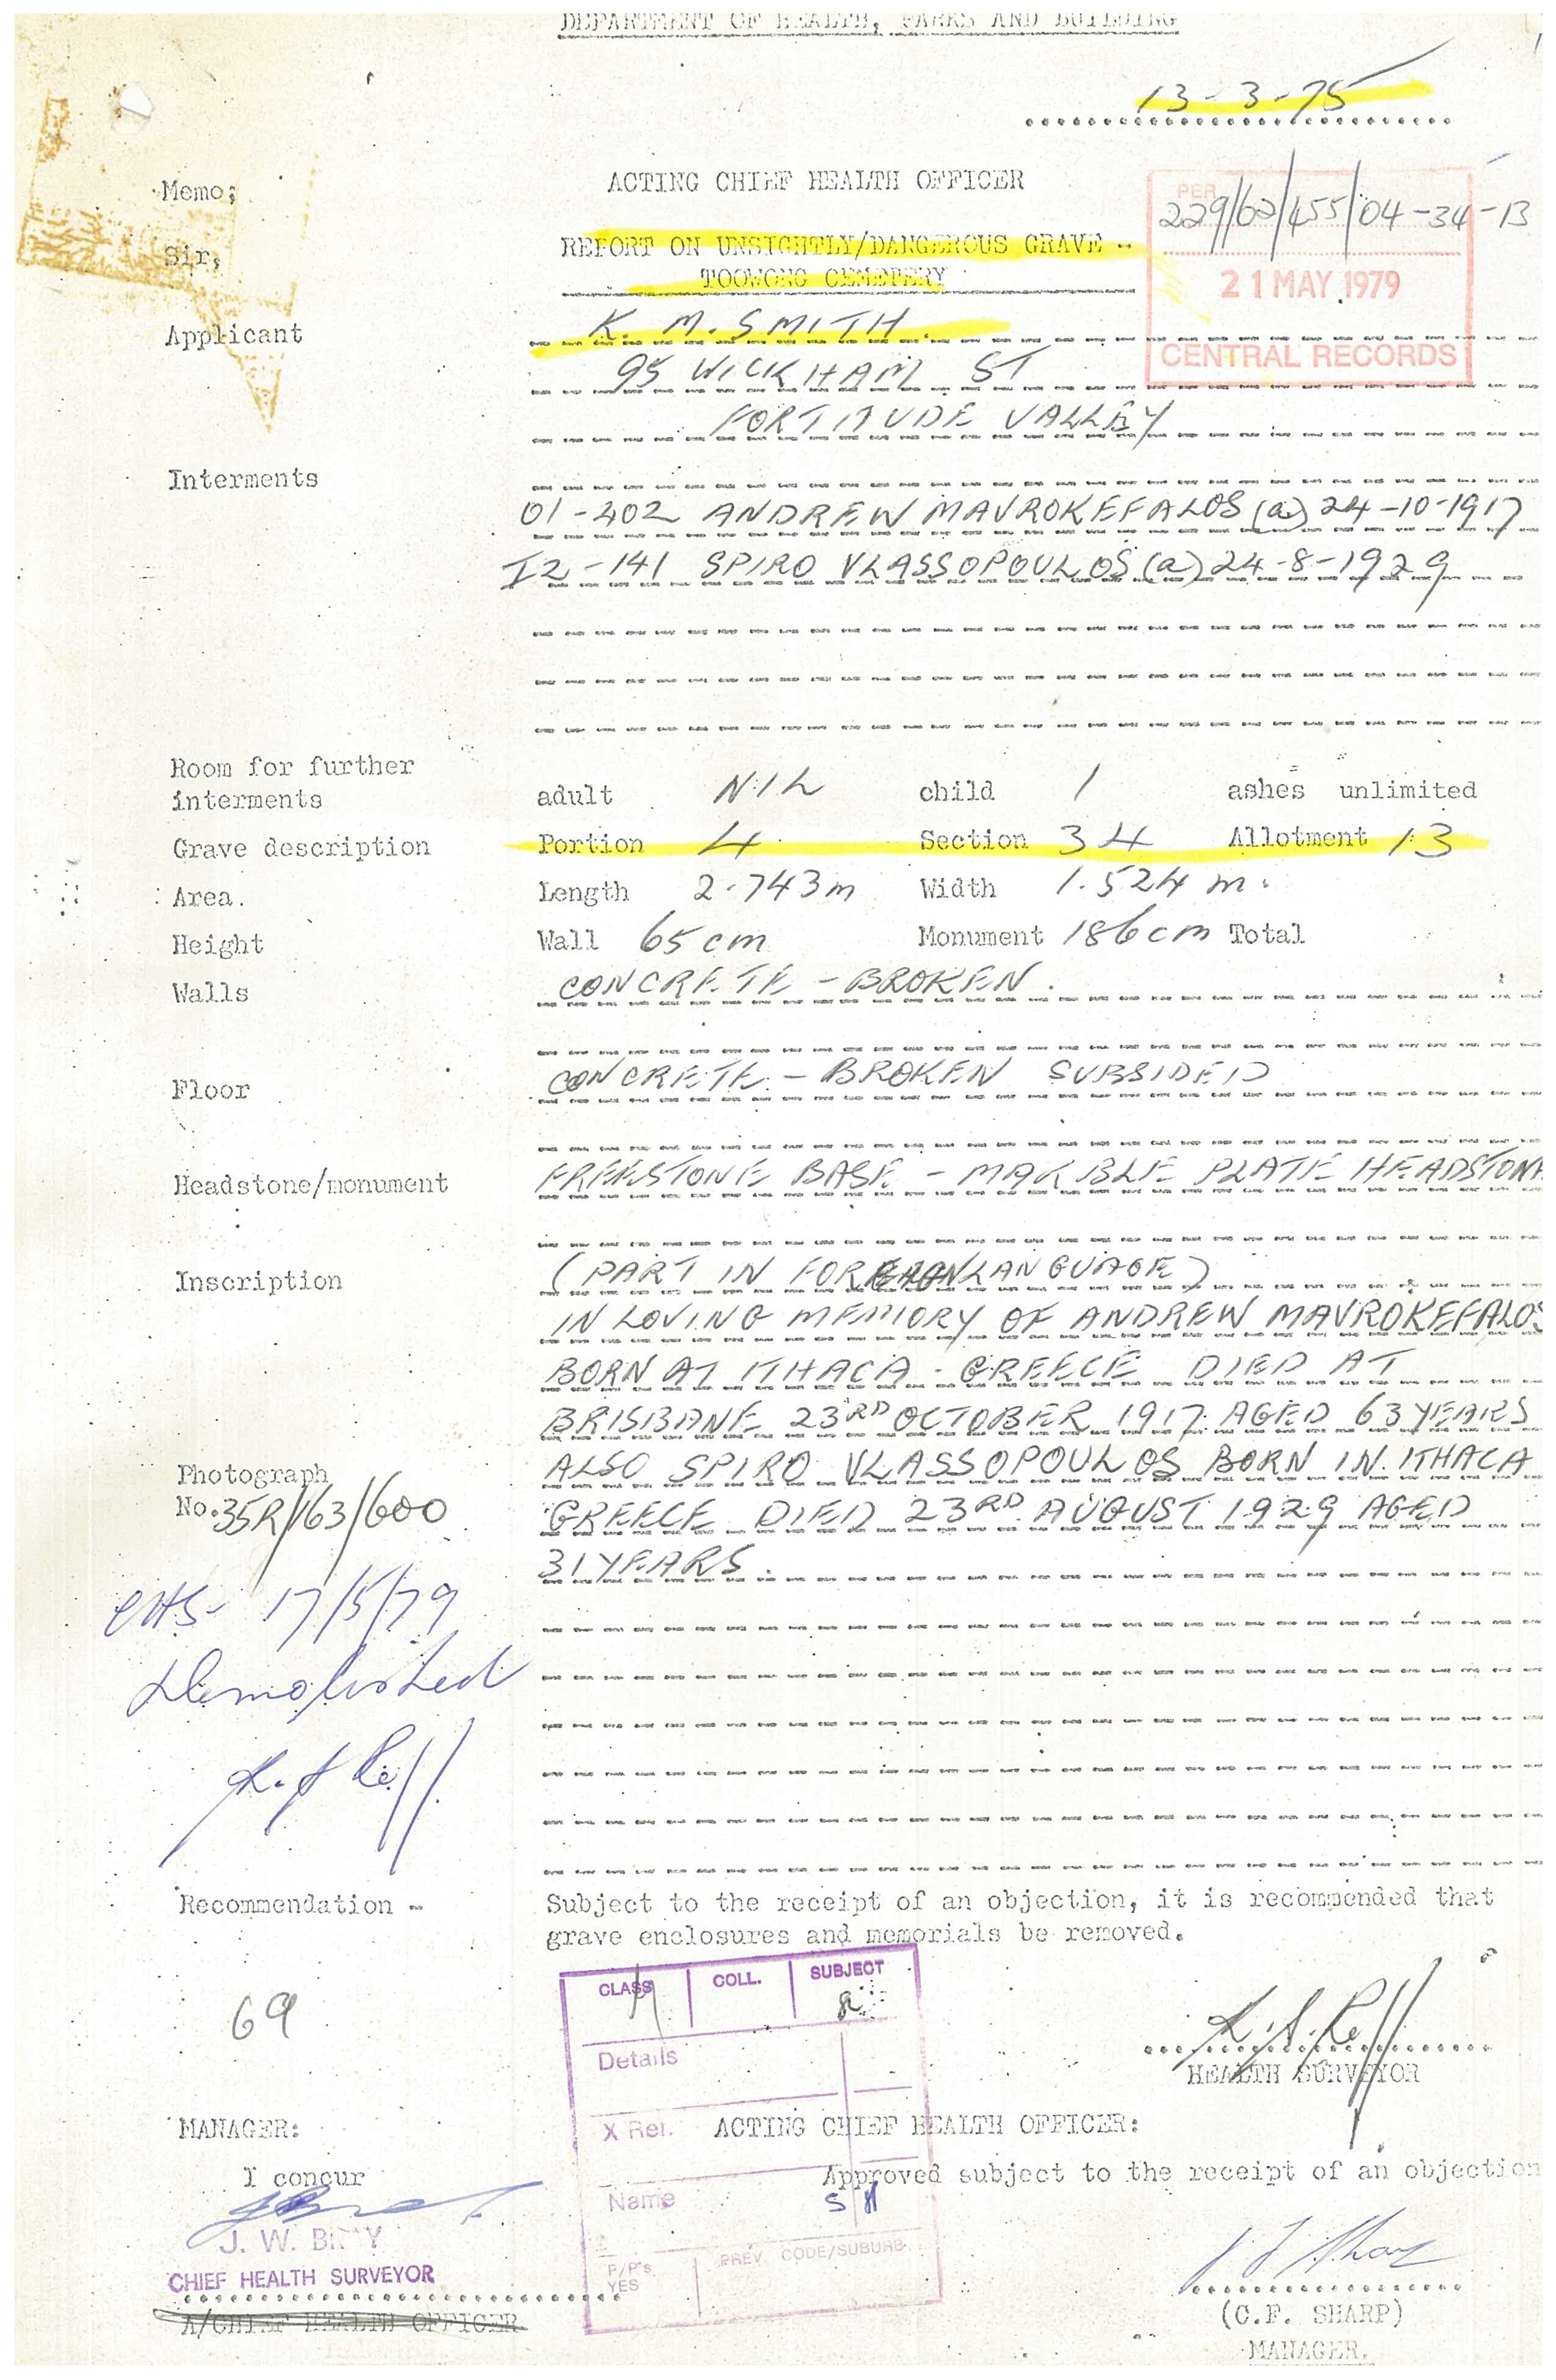 DEPARTMENT OF HEALTH, PARKS AND BUILDING
13-3-75
Memo; ACTING CHIEF HEALTH OFFICER
PER
229/62/455/04-34-13
Sir, REPORT ON UNSIGHTLY/DANGEROUS GRAVE -
TOOWONG CEMETERY
21 MAY 1979
CENTRAL RECORDS
Applicant K. M. SMITH.
95 WICKHAM ST
FORTITUDE VALLEY
Interments
01-402 ANDREW MAVROKEFALOS (a) 24-10-1917
I2-141 SPIRO VLASSOPOULOS (a) 24-8-1929
Room for further
interments adult NIL child 1 ashes unlimited
Grave description Portion 4 Section 34 Allotment 13
Area. Length 2.743m Width 1.524 m.
Height Wall 65 cm Monument 186cm Total
Walls CONCRETE - BROKEN.
Floor CONCRETE - BROKEN SUBSIDED
Headstone/monument FREESTONE BASE - MARBLE PLATE HEADSTONE
Inscription (PART IN FOREIGN LANGUAGE)
IN LOVING MEMORY OF ANDREW MAVROKEFALOS
BORN AT ITHACA - GREECE DIED AT
BRISBANE 23RD OCTOBER 1917. AGED 63 YEARS
ALSO SPIRO VLASSOPOULOS BORN IN ITHACA
GREECE DIED 23RD AUGUST 1929 AGED
31 YEARS.
Photograph
No. 35R/63/600
17/5/79
Demolished
Recommendation - Subject to the receipt of an objection, it is recommended that
grave enclosures and memorials be removed.
CLASS COLL. SUBJECT
69
Details
HEALTH SURVEYOR
X Ref.
MANAGER: ACTING CHIEF HEALTH OFFICER:
I concur Approved subject to the receipt of an objection
Name SH
J. W.
P/P's YES
PREV. CODE/SUBURB
CHIEF HEALTH SURVEYOR
A/CHIEF HEALTH OFFICER
(C.F. SHARP)
MANAGER.